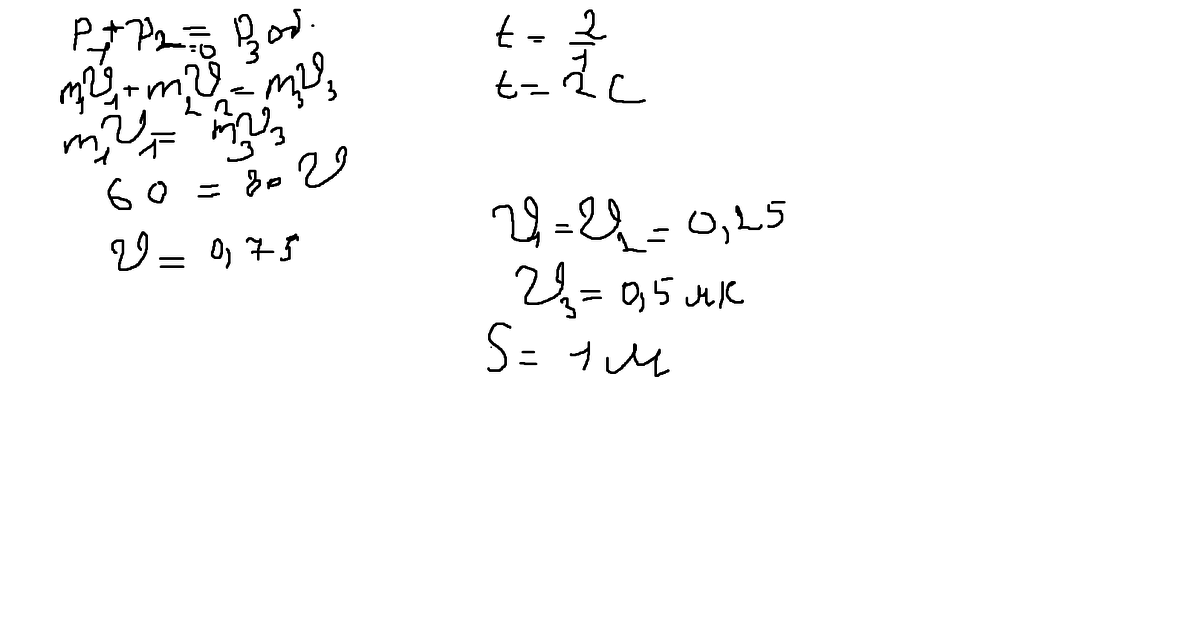 P₁ + P₂ = P₃ об.
=0
m₁v₁ + m₂v₂ = m₃v₃
m₁v₁ = m₃v₃
60 = 80 v
v = 0,75
t = 2/1
t = 2 с
v₁ = v₂ = 0,25
v₃ = 0,5 мк
S = 1 м